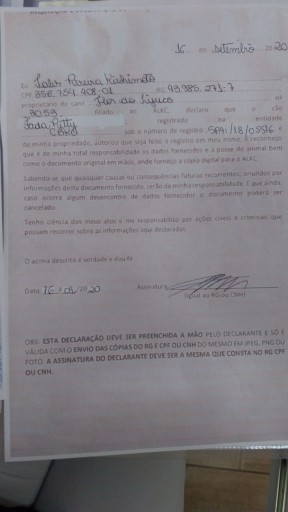 16 de Setembro de 2020
Eu
CPF 358.754.408-01 RG 43985.271-7
proprietário do canil Flor do Lipuco nº
3059 filiado ao ALKC, declaro que o cão
Jada Pitty registrado na entidade
sob o número de registro SEA/18/05516 é
de minha propriedade, autorizo que seja feito o registro em meu nome. E reconheço
que é de minha total responsabilidade os dados fornecidos e a posse do animal bem
como o documento original em mãos, onde forneço a cópia digital para a ALKC.
Sabendo-se que quaisquer causas ou consequências futuras recorrentes, oriundos por
informações deste documento fornecido, serão da minha responsabilidade. E que ainda,
caso ocorra algum desencontro de dados fornecidos o documento poderá ser
cancelado.
Tenho ciência dos meus atos e me responsabilizo por ações cíveis e criminais que
possam recorrer sobre as informações aqui declaradas.
O acima descrito é verdade e dou fé
Data: 16 / 09 / 2020 Assinatura
(igual ao RG ou CNH)
OBS: ESTA DECLARAÇÃO DEVE SER PREENCHIDA À MÃO PELO DECLARANTE E SÓ É
VÁLIDA COM O ENVIO DAS CÓPIAS DO RG E CPF OU CNH DO MESMO EM JPEG, PNG OU
FOTO. A ASSINATURA DO DECLARANTE DEVE SER A MESMA QUE CONSTA NO RG CPF
OU CNH.